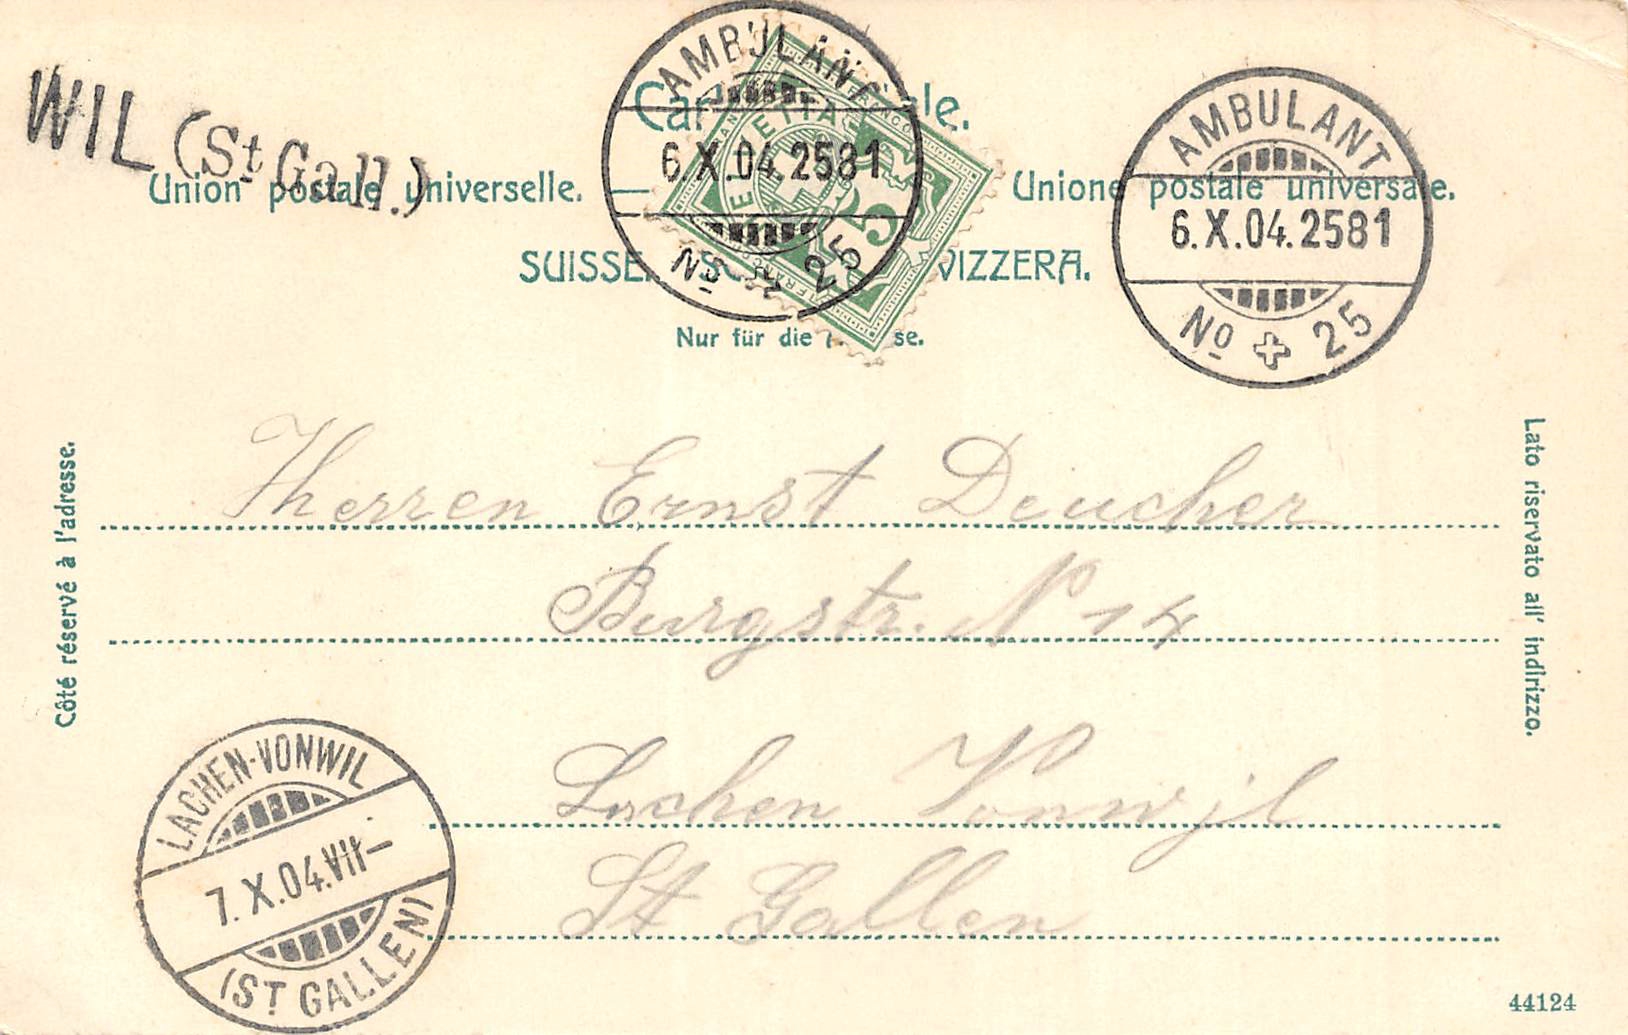 WIL (St Gall.)
AMBULANT
6.X.04.2581
No 25
HELVETIA
FRANCO
5
AMBULANT
6.X.04.2581
No 25
Union postale universelle.
Unione postale universale.
SUISSE.
SVIZZERA.
Nur für die
Côté réservé à l'adresse.
Lato riservato all' indirizzo.
Herren Ernst Deucher
Burgstr. No 14
Lachen Vonwil
St Gallen
LACHEN-VONWIL
7.X.04.VII-
(ST GALLEN)
44124